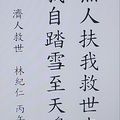 無人扶我救世
我自踏雪至天
濟人救世 林紀仁 丙午